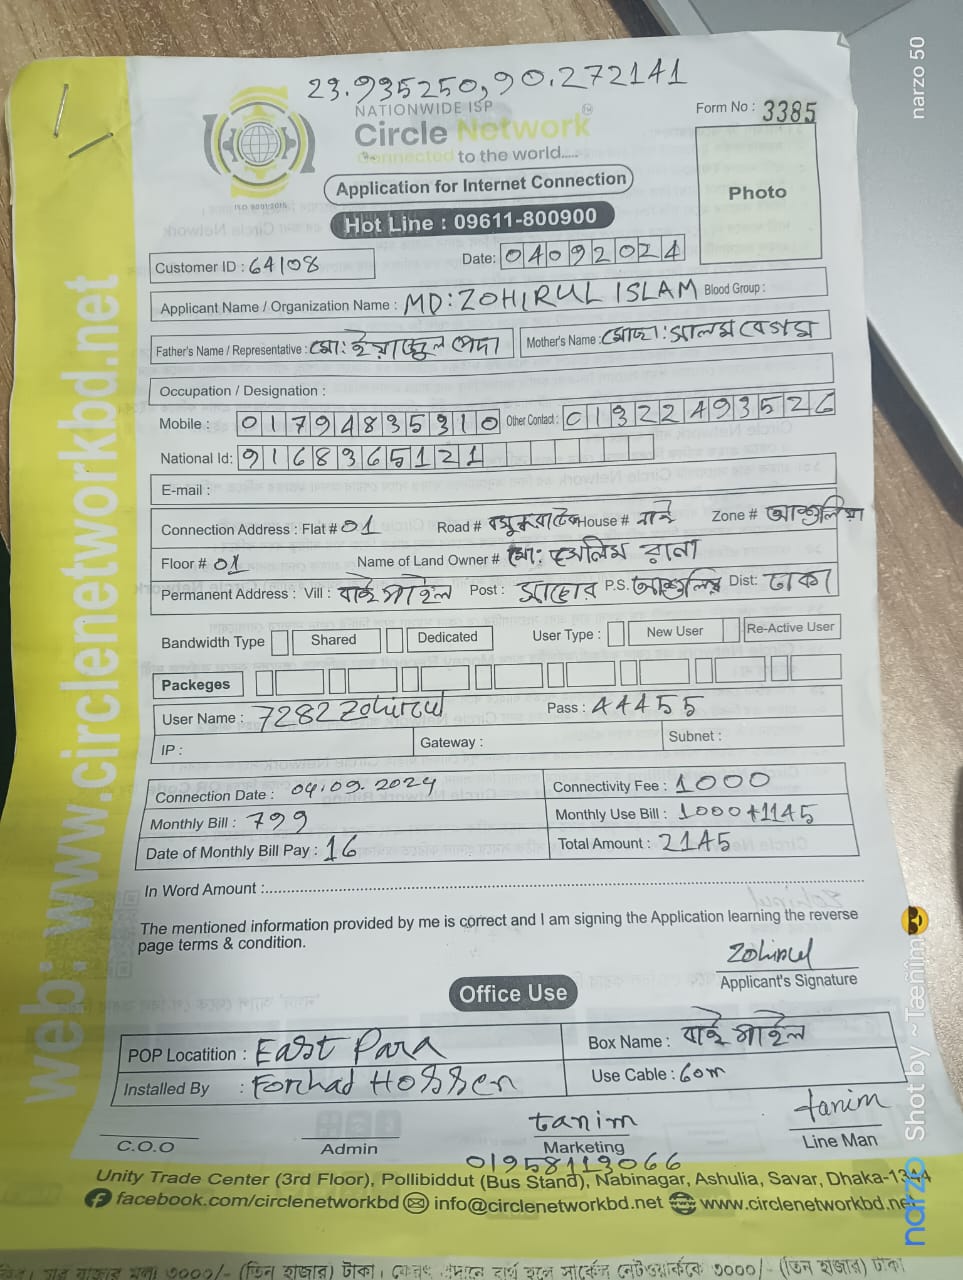 23.935250,90.272141
NATIONWIDE ISP
Circle Network
Connected to the world.....
ISO 9001:2015
Form No : 3385
Photo
Application for Internet Connection
Hot Line : 09611-800900
Customer ID : 64108
Date: 04092024
Applicant Name / Organization Name : MD: ZOHIRUL ISLAM Blood Group :
Father's Name / Representative : মো: ইয়াজুল Mother's Name : মোছা: সালমা বেগম
Occupation / Designation :
Mobile : 01794835310 Other Contact : 01322493526
National Id: 9168365121
E-mail :
Connection Address : Flat # 01 Road # House # নাই Zone # আশুলিয়া
Floor # 01 Name of Land Owner # মো: সেলিম রানা
Permanent Address : Vill : বাইপাইল Post : সাভার P.S. আশুলিয়া Dist: ঢাকা
Bandwidth Type Shared Dedicated User Type : New User Re-Active User
Packeges
User Name : 7282Zohirul Pass : 44455
IP : Gateway : Subnet :
Connection Date : 04.09.2024 Connectivity Fee : 1000
Monthly Bill : 799 Monthly Use Bill : 1000+1145
Date of Monthly Bill Pay : 16 Total Amount : 2145
In Word Amount :
The mentioned information provided by me is correct and I am signing the Application learning the reverse
page terms & condition.
Zohirul
Applicant's Signature
Office Use
POP Locatition : East Para Box Name : বাইপাইল
Installed By : Forhad Hossen Use Cable : 60m
tanim tanim
C.O.O Admin Marketing Line Man
01958113066
Unity Trade Center (3rd Floor), Pollibiddut (Bus Stand), Nabinagar, Ashulia, Savar, Dhaka-1344
facebook.com/circlenetworkbd info@circlenetworkbd.net www.circlenetworkbd.net
web: www.circlenetworkbd.net
narzo 50
narzo Shot by ~Tæñím😎